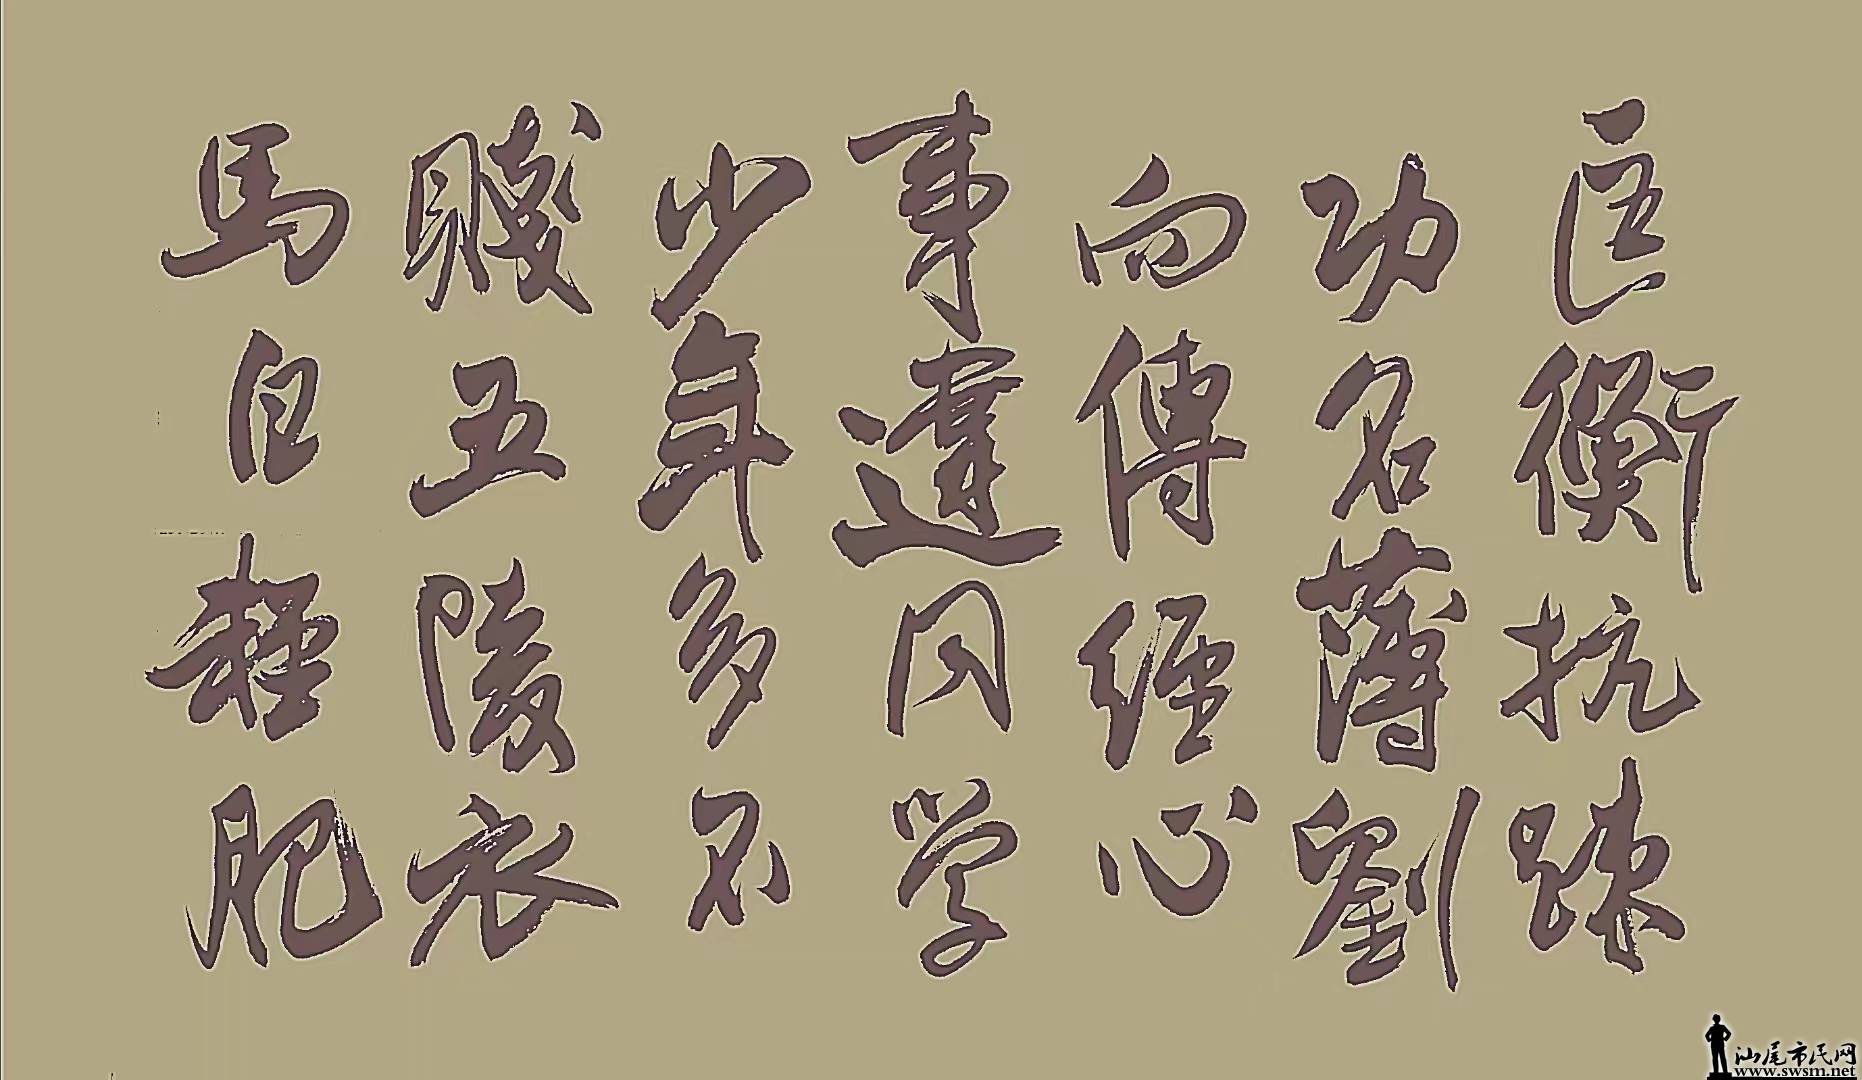 匡衡抗疎
功名薄劉
向傳經心
事違同学
少年多不
賤五陵衣
馬自輕肥
汕尾市民网
www.swsm.net